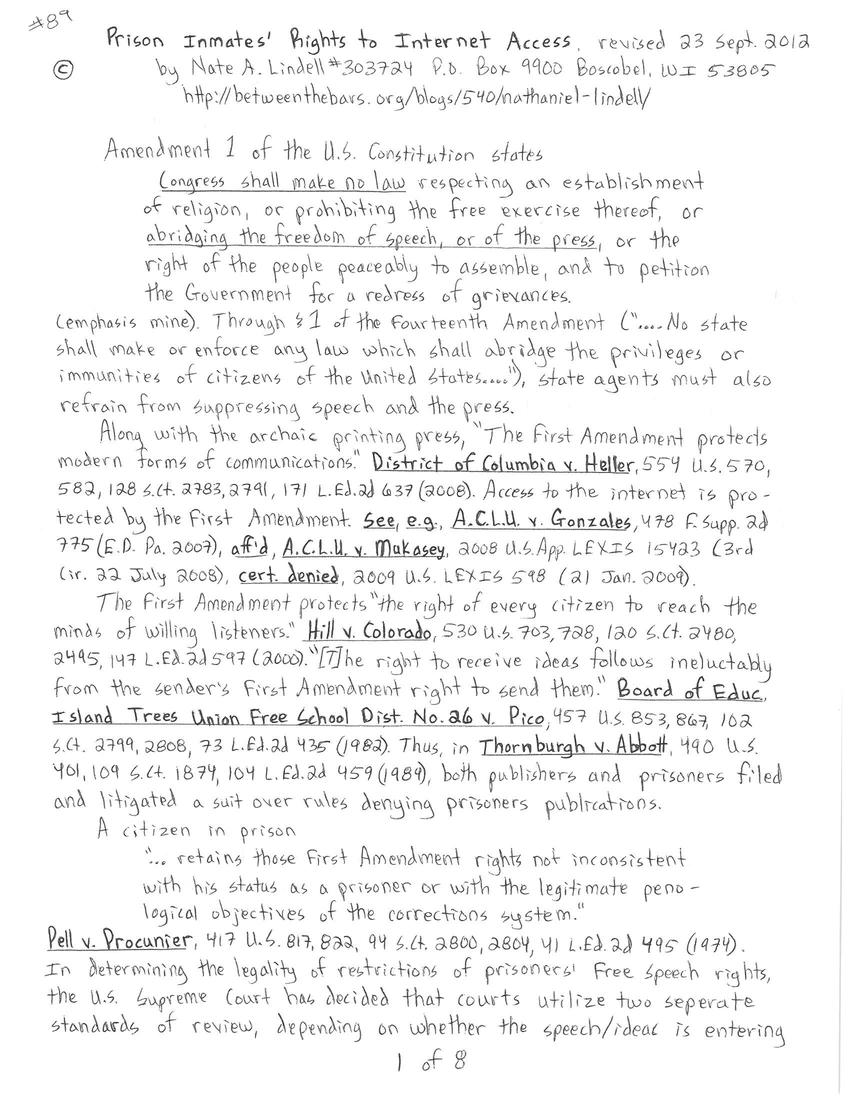 #89
Prison Inmates' Rights to Internet Access, revised 23 Sept. 2012
© by Nate A. Lindell #303724 P.O. Box 9900 Boscobel, WI 53805
http://betweenthebars.org/blogs/540/nathaniel-lindell/
Amendment 1 of the U.S. Constitution states
Congress shall make no law respecting an establishment
of religion, or prohibiting the free exercise thereof, or
abridging the freedom of speech, or of the press, or the
right of the people peaceably to assemble, and to petition
the Government for a redress of grievances.
(emphasis mine). Through §1 of the Fourteenth Amendment ("....No state
shall make or enforce any law which shall abridge the privileges or
immunities of citizens of the United States...."), state agents must also
refrain from suppressing speech and the press.
Along with the archaic printing press, "The First Amendment protects
modern forms of communications." District of Columbia v. Heller, 554 U.S. 570,
582, 128 S.Ct. 2783, 2791, 171 L.Ed.2d 637 (2008). Access to the internet is pro-
tected by the First Amendment. See, e.g., A.C.L.U. v. Gonzales, 478 F. Supp. 2d
775 (E.D. Pa. 2007), aff'd, A.C.L.U. v. Mukasey, 2008 U.S. App. LEXIS 15423 (3rd
Cir. 22 July 2008), cert. denied, 2009 U.S. LEXIS 598 (21 Jan. 2009).
The First Amendment protects "the right of every citizen to reach the
minds of willing listeners." Hill v. Colorado, 530 U.S. 703, 728, 120 S.Ct. 2480,
2495, 147 L.Ed.2d 597 (2000). "[T]he right to receive ideas follows ineluctably
from the sender's First Amendment right to send them." Board of Educ.
Island Trees Union Free School Dist. No. 26 v. Pico, 457 U.S. 853, 867, 102
S.Ct. 2799, 2808, 73 L.Ed.2d 435 (1982). Thus, in Thornburgh v. Abbott, 490 U.S.
401, 109 S.Ct. 1874, 104 L.Ed.2d 459 (1989), both publishers and prisoners filed
and litigated a suit over rules denying prisoners publications.
A citizen in prison
"... retains those First Amendment rights not inconsistent
with his status as a prisoner or with the legitimate peno-
logical objectives of the corrections system."
Pell v. Procunier, 417 U.S. 817, 822, 94 S.Ct. 2800, 2804, 41 L.Ed.2d 495 (1974).
In determining the legality of restrictions of prisoners' Free speech rights,
the U.S. Supreme Court has decided that courts utilize two seperate
standards of review, depending on whether the speech/ideas is entering
1 of 8